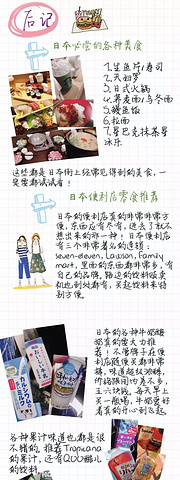 后记
日本必尝的各种美食
1.生鱼片/寿司
2.天妇罗
3.日式火锅
4.荞麦面/乌冬面
5.鳗鱼饭
6.拉面
7.星巴克抹茶星冰乐
这些都是日本街上经常见得到的美食，一定要都试试看！
日本便利店零食推荐
日本的便利店真的非常非常方便，东西应有尽有，进去了就不想出来的那一种！日本便利店有三个非常著名的连锁：
seven-eleven, Lawson, family
mart，里面的东西都非常多，有自己的品牌，路边的饮料贩卖机也到处都有，买起饮料来特别方便。
日本的各种牛奶酸奶真的要大力推荐！不管牌子在便利店超级买都非常棒，味道超级浓郁，
五六块钱，每天早上买一瓶喝，
真的开心到飞起。
各种果汁味道也都是很不错的，推荐Tropicana
的果汁，还有QOO酷儿的饮料。